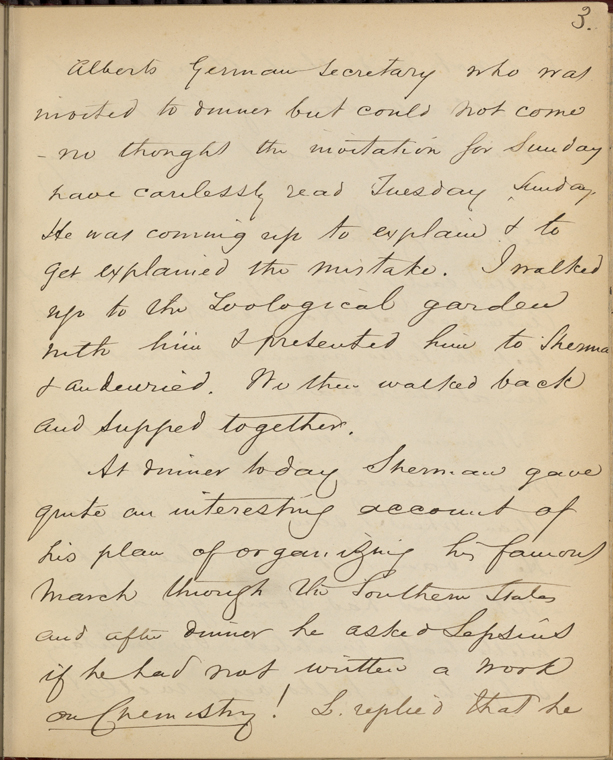 3.
Alberts German Secretary who was
invited to dinner but could not come
- we thought the invitation for Sunday
have carelessly read Tuesday, Sunday.
He was coming up to explain & to
get explained the mistake. I walked
up to the Zoological garden
with him & presented him to Sherma
&. We then walked back
and supped together.
At dinner today Sherman gave
quite an interesting account of
his plan of organizing his famous
March through the Southern States
and after dinner he asked Lepsius
if he had not written a work
on Chemistry! L. replied that he